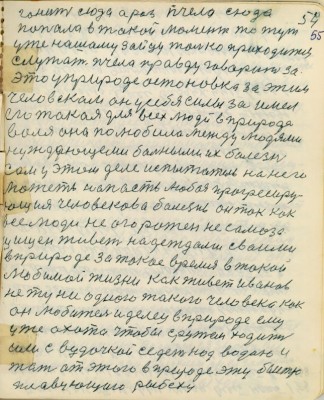 гонит сюда а раз пчела сюда 57
попала в такой момент то тут 55
уже нашему зайцу только приходится
слушать пчела правду говорит за
это у природе остановка за этим
человеком он у себя силы за имел
его такая для всех людей в природе
воля она полюбила между людями
нуждающеми больными их болезн
сам у этом деле испытатель на него
может напасть любая прогрессиру-
ющия человекова болезнь он так как
все люди не огорожен не самоза
щищен живет надеждами своими
в природе за такое время в такой
любимой жизни как живет Иванов
нету ни одного такого человека как
он любится и делец в природе ему
уже охота чтобы с ружом ходить
или с вудочкой седет над водою и
тот от этого в природе эту
плавующаю рыбеху